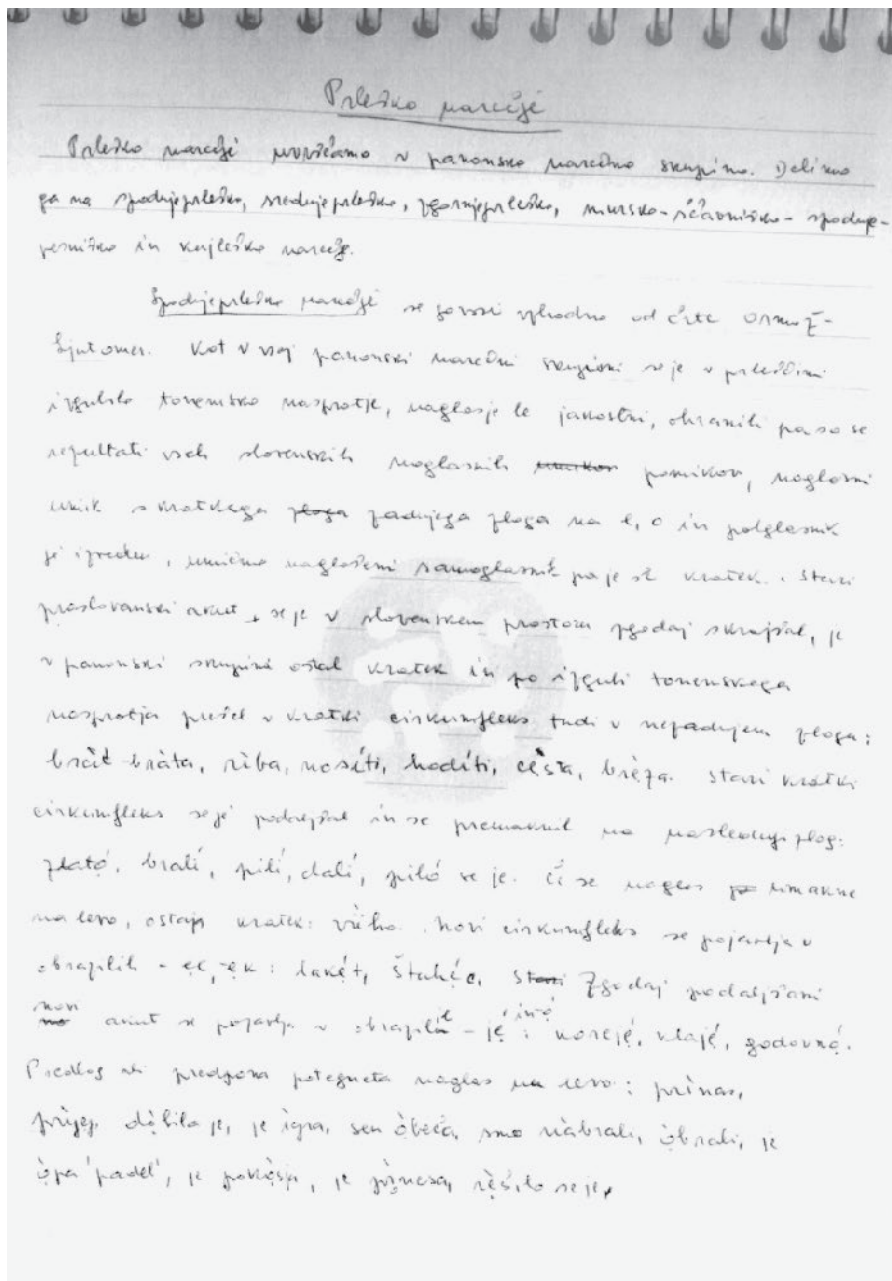 Prleško narečje
Prleško narečje uvrščamo v panonsko narečno skupino. Delimo
ga na spodnjeprleško, srednjeprleško, zgornjeprleško, mursko-ščavniško-spodnje-
pesniško in narečje.
Spodnjeprleško narečje se govori vzhodno od črte Ormož-
Ljutomer. Kot v vsej panonski narečni skupini se je v prleščini
izgubilo tonemsko nasprotje, naglas je le jakostni, ohranili pa so se
rezultati vseh slovenskih naglasnih umikov pomikov, naglasni
umik s kratkega zloga zadnjega zloga na e, o in polglasnik
je izveden, umično naglašeni samoglasnik pa je še kratek. Stari
praslovanski akut, se je v slovenskem prostoru zgodaj skrajšal, je
v panonski skupini ostal kratek in po izgubi tonemskega
nasprotja prešel v kratki cirkumfleks tudi v nezadnjem zlogu:
bràt bràta, rìba, nosìti, hodìti, cẹ̀sta, brẹ̀za. Stari kratki
cirkumfleks se je podaljšal in se premaknil na naslednji zlog:
zlatọ́, bralí, pilí, dalí, pilọ́ se je. Če se naglas umakne
na levo, ostaja kratek: vǜho. Novi cirkumfleks se pojavlja v
obrazilih -ec, -ek: lakẹ́t, Stari Zgodaj podaljšani
novi akut se pojavlja v obrazilu -jé in -ọ́: korejé, vlajé, godovnọ́.
Predlog ali predpona potegneta naglas na levo: prìnas,
dọ̀bila je, je ìgra, sen ọ̀beča, smo nàbrali, ọ̀brali, je
ọ̀pa 'padel', je pokọ̀sja, je prìnesa, rẹ̀šilo se je.